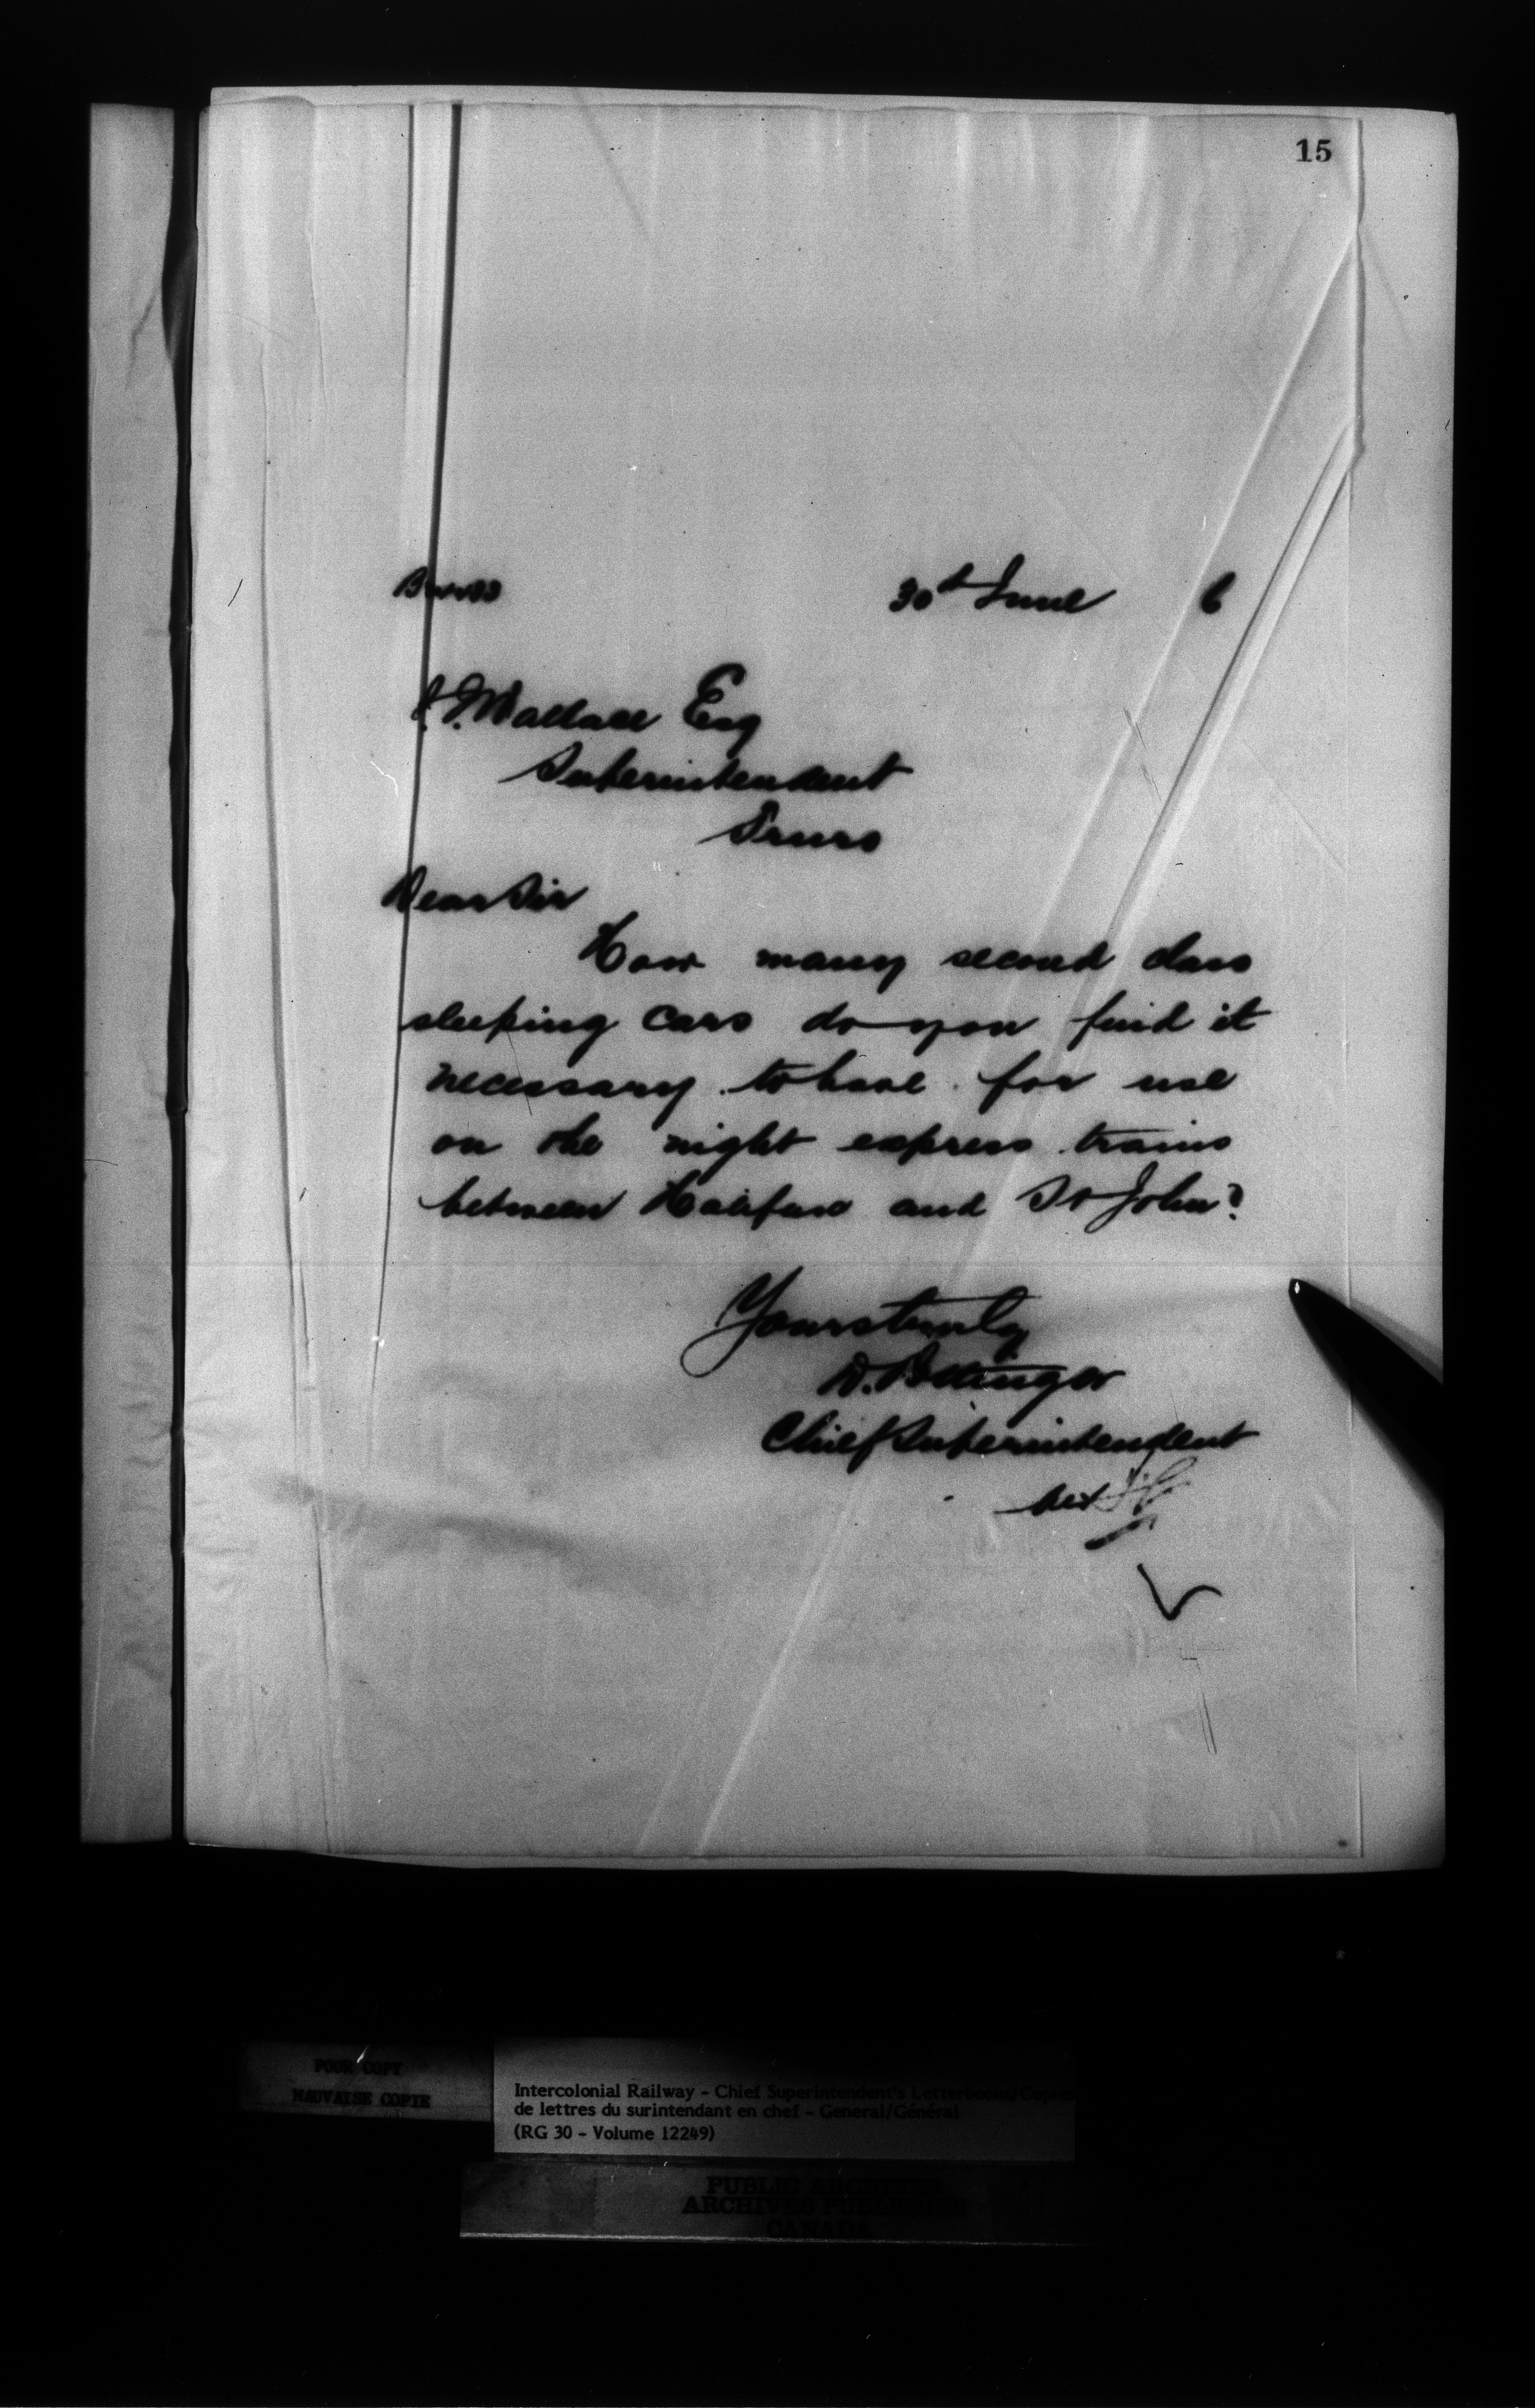 15
30th June 6
J. J. Wallace Esq
Superintendent
Truro
Dear Sir
How many second class
sleeping cars do you find it
necessary to have for use
on the night express trains
between Halifax and St John?
Yours truly
D. Pottinger
Chief Superintendent
POOR COPY
MAUVAISE COPIE
Intercolonial Railway - Chief Superintendent's Letterbooks/Copies
de lettres du surintendant en chef - General/Général
(RG 30 - Volume 12249)
PUBLIC ARCHIVES
ARCHIVES PUBLIQUES
CANADA